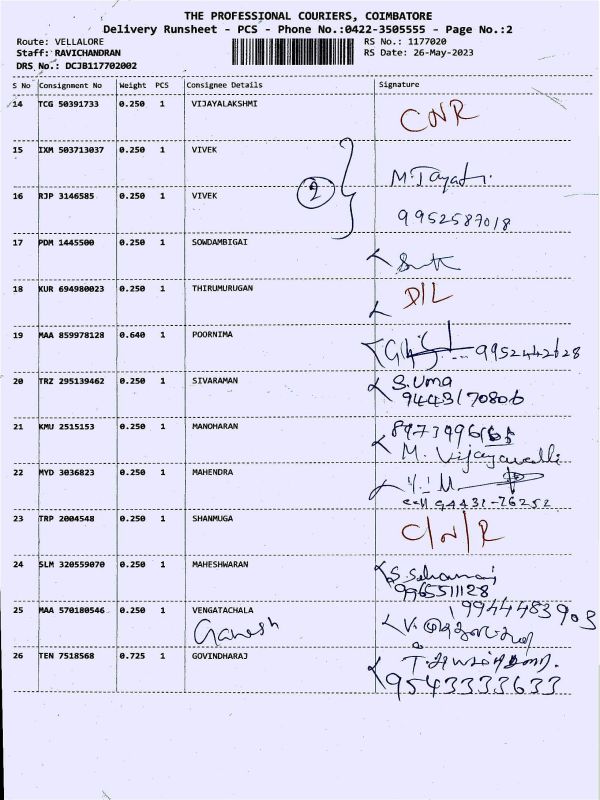 THE PROFESSIONAL COURIERS, COIMBATORE
Delivery Runsheet - PCS - Phone No.:0422-3505555 - Page No.:2
Route: VELLALORE
RS No.: 1177020
Staff: RAVICHANDRAN
RS Date: 26-May-2023
DRS No.: DCJB117702002
S No Consignment No Weight PCS Consignee Details Signature
14 TCG 50391733 0.250 1 VIJAYALAKSHMI CNR
15 IXM 503713037 0.250 1 VIVEK
2
16 RJP 3146585 0.250 1 VIVEK
9952587018
17 PDM 1445500 0.250 1 SOWDAMBIGAI
18 KUR 694980023 0.250 1 THIRUMURUGAN D/L
19 MAA 859978128 0.640 1 POORNIMA
9952442628
20 TRZ 295139462 0.250 1 SIVARAMAN S.Uma
9443170806
21 KMU 2515153 0.250 1 MANOHARAN
M. Vijayavalli
22 MYD 3036823 0.250 1 MAHENDRA
cell 94431-76252
23 TRP 2004548 0.250 1 SHANMUGA C/N/R
24 SLM 320559070 0.250 1 MAHESHWARAN
9965511128
25 MAA 570180546 0.250 1 VENGATACHALA 9944483903
Ganesh
26 TEN 7518568 0.725 1 GOVINDHARAJ
9543333633